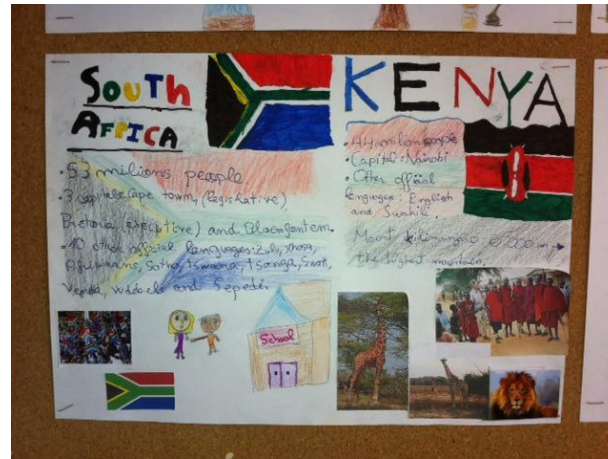 SOUTH
AFRICA
• 53 millions people
3 capitals Cape town, (legislative),
Pretoria and Bloemfontem
• 10 other official languages: Zulu, Xhosa,
Sotho, Tswana, Tsonga, Swati,
Venda, and Sepedi
School
KENYA
• 44 million people
• Capital: Nairobi
• Other official
languages: English
and Suahili.
Mount
the highest mountain.